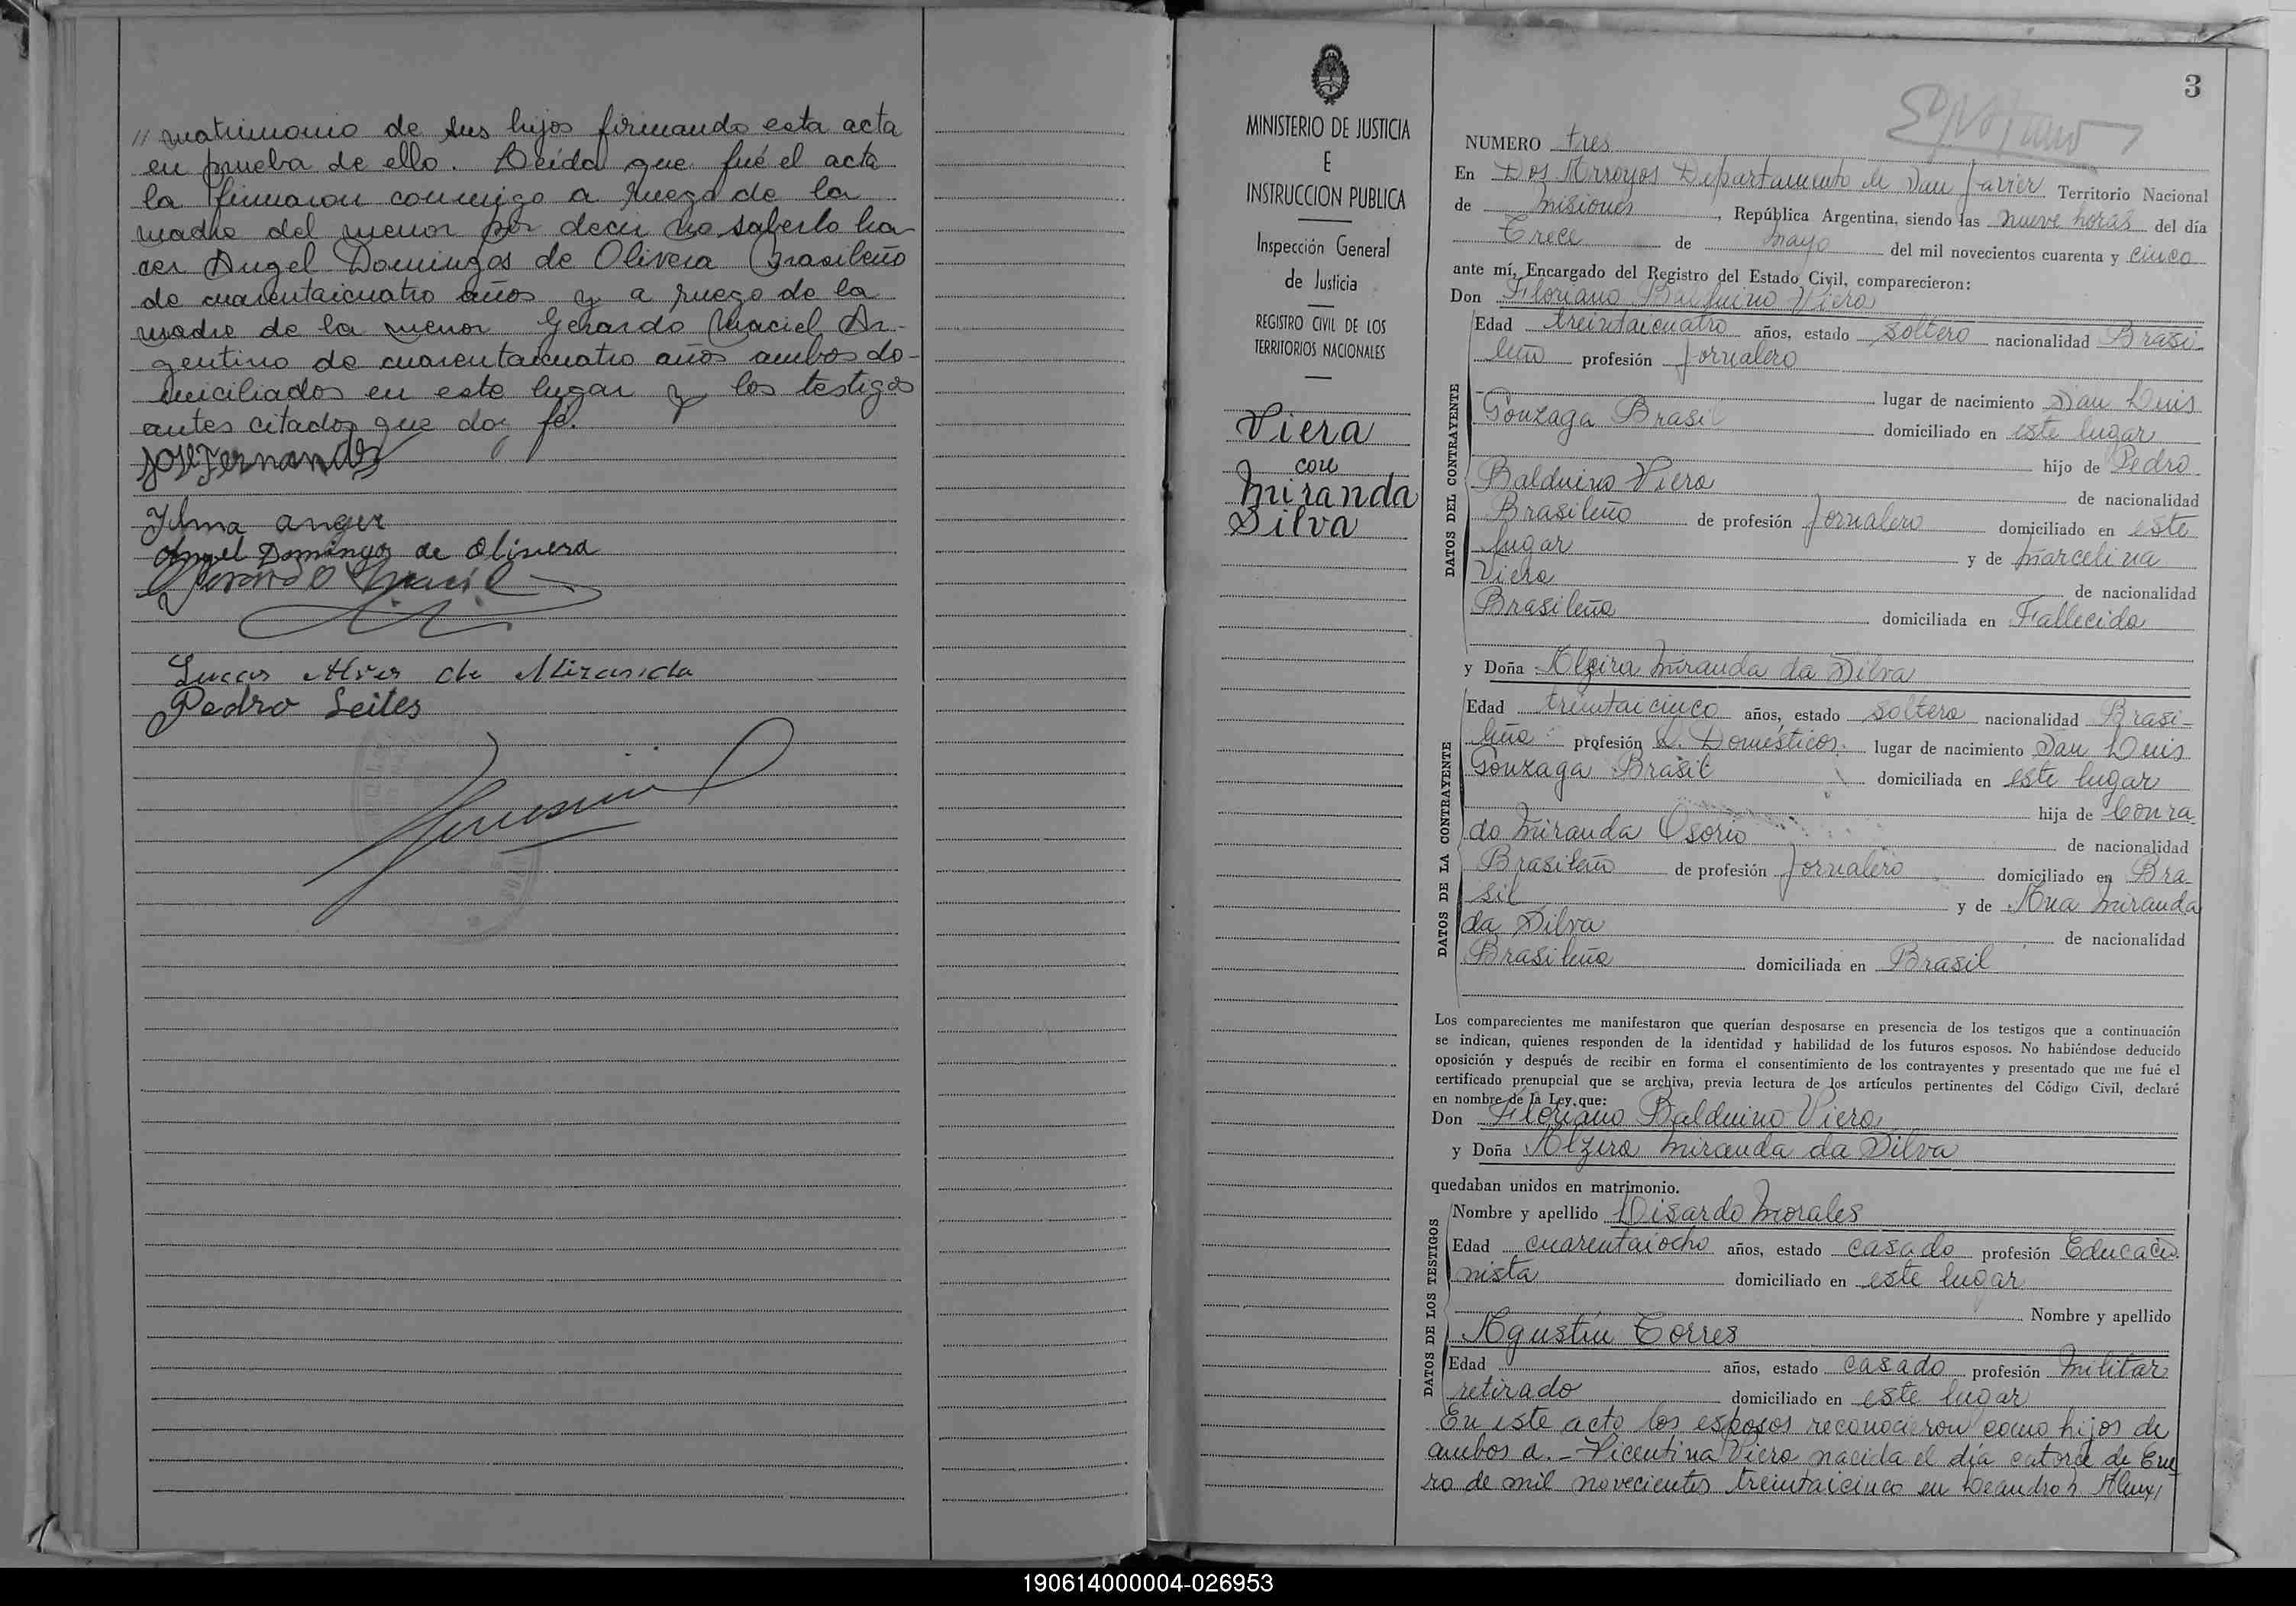 // matrimonio de sus hijos firmando esta acta
en prueba de ello. Leída que fué el acta
la firmaron conmigo a ruego de la
madre del menor por decir no saberlo ha-
cer Angel Domingos de Olivera Brasileño
de cuarentaicuatro años y a ruego de la
madre de la menor Gerardo Maciel Ar-
gentino de cuarentaicuatro años ambos do-
miciliados en este lugar y los testigos
antes citados que doy fé.
José Fernandes
Ilma anger
Angel Domingos de Olivera
Gerardo Maciel
Lucas Alves de Miranda
Pedro Leites
3
MINISTERIO DE JUSTICIA
E
INSTRUCCION PUBLICA
Inspección General
de Justicia
REGISTRO CIVIL DE LOS
TERRITORIOS NACIONALES
Viera
con
Miranda
Silva
NUMERO tres
En Dos Arroyos Departamento de San Javier Territorio Nacional
de Misiones, República Argentina, siendo las nueve horas del día
Trece de mayo del mil novecientos cuarenta y cinco
ante mí, Encargado del Registro del Estado Civil, comparecieron:
Don Floriano Balduino Viera
DATOS DEL CONTRAYENTE
Edad treintaicuatro años, estado soltero nacionalidad Brasi-
leño profesión Jornalero
lugar de nacimiento San Luis
Gonzaga Brasil domiciliado en este lugar
hijo de Pedro
Balduino Viera de nacionalidad
Brasileño de profesión Jornalero domiciliado en este
lugar y de Marcelina
Viera de nacionalidad
Brasileña domiciliada en Fallecida
y Doña Alzira Miranda da Silva
DATOS DE LA CONTRAYENTE
Edad treintaicinco años, estado soltera nacionalidad Brasi-
leña profesión Q. Domésticos lugar de nacimiento San Luis
Gonzaga Brasil domiciliada en este lugar
hija de Conra-
do Miranda Osorio de nacionalidad
Brasileño de profesión Jornalero domiciliado en Bra-
sil y de Ana Miranda
da Silva de nacionalidad
Brasileña domiciliada en Brasil
Los comparecientes me manifestaron que querían desposarse en presencia de los testigos que a continuación
se indican, quienes responden de la identidad y habilidad de los futuros esposos. No habiéndose deducido
oposición y después de recibir en forma el consentimiento de los contrayentes y presentado que me fué el
certificado prenupcial que se archiva, previa lectura de los artículos pertinentes del Código Civil, declaré
en nombre de la Ley, que:
Don Floriano Balduino Viera
y Doña Alzira Miranda da Silva
quedaban unidos en matrimonio.
DATOS DE LOS TESTIGOS
Nombre y apellido Lisardo Morales
Edad cuarentaiocho años, estado casado profesión Educacio-
nista domiciliado en este lugar
Nombre y apellido
Agustín Torres
Edad años, estado casado profesión Militar
retirado domiciliado en este lugar
En este acto los esposos reconocieron como hijos de
ambos a. - Vicentina Viera nacida el día catorce de Ene
ro de mil novecientos treintaicinco en Leandro N. Alem,
190614000004-026953